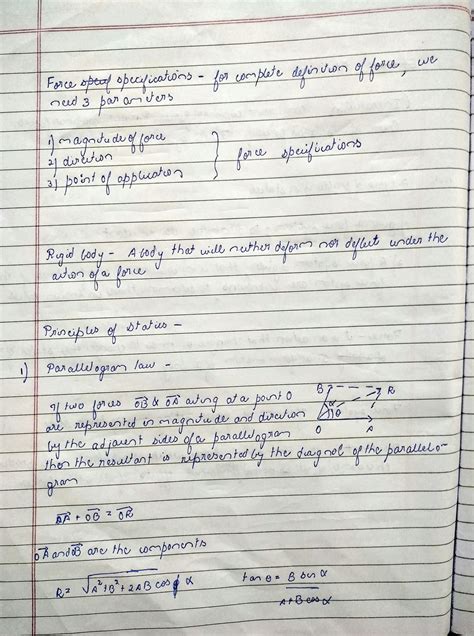 Force specifications - for complete definition of force, we
need 3 parameters
1) magnitude of force
2) direction
3) point of application
force specifications
Rigid body - A body that will neither deform nor deflect under the
action of a force
Principles of Statics -
1) Parallelogram law -
If two forces OB & OA acting at a point O
are represented in magnitude and direction
by the adjacent sides of a parallelogram
then the resultant is represented by the diagnol of the parallelo-
gram
B R
α θ
O A
OA + OB = OR
OA and OB are the components
R = √A²+B²+2AB cos α
tan θ = B sin α
A+B cos α